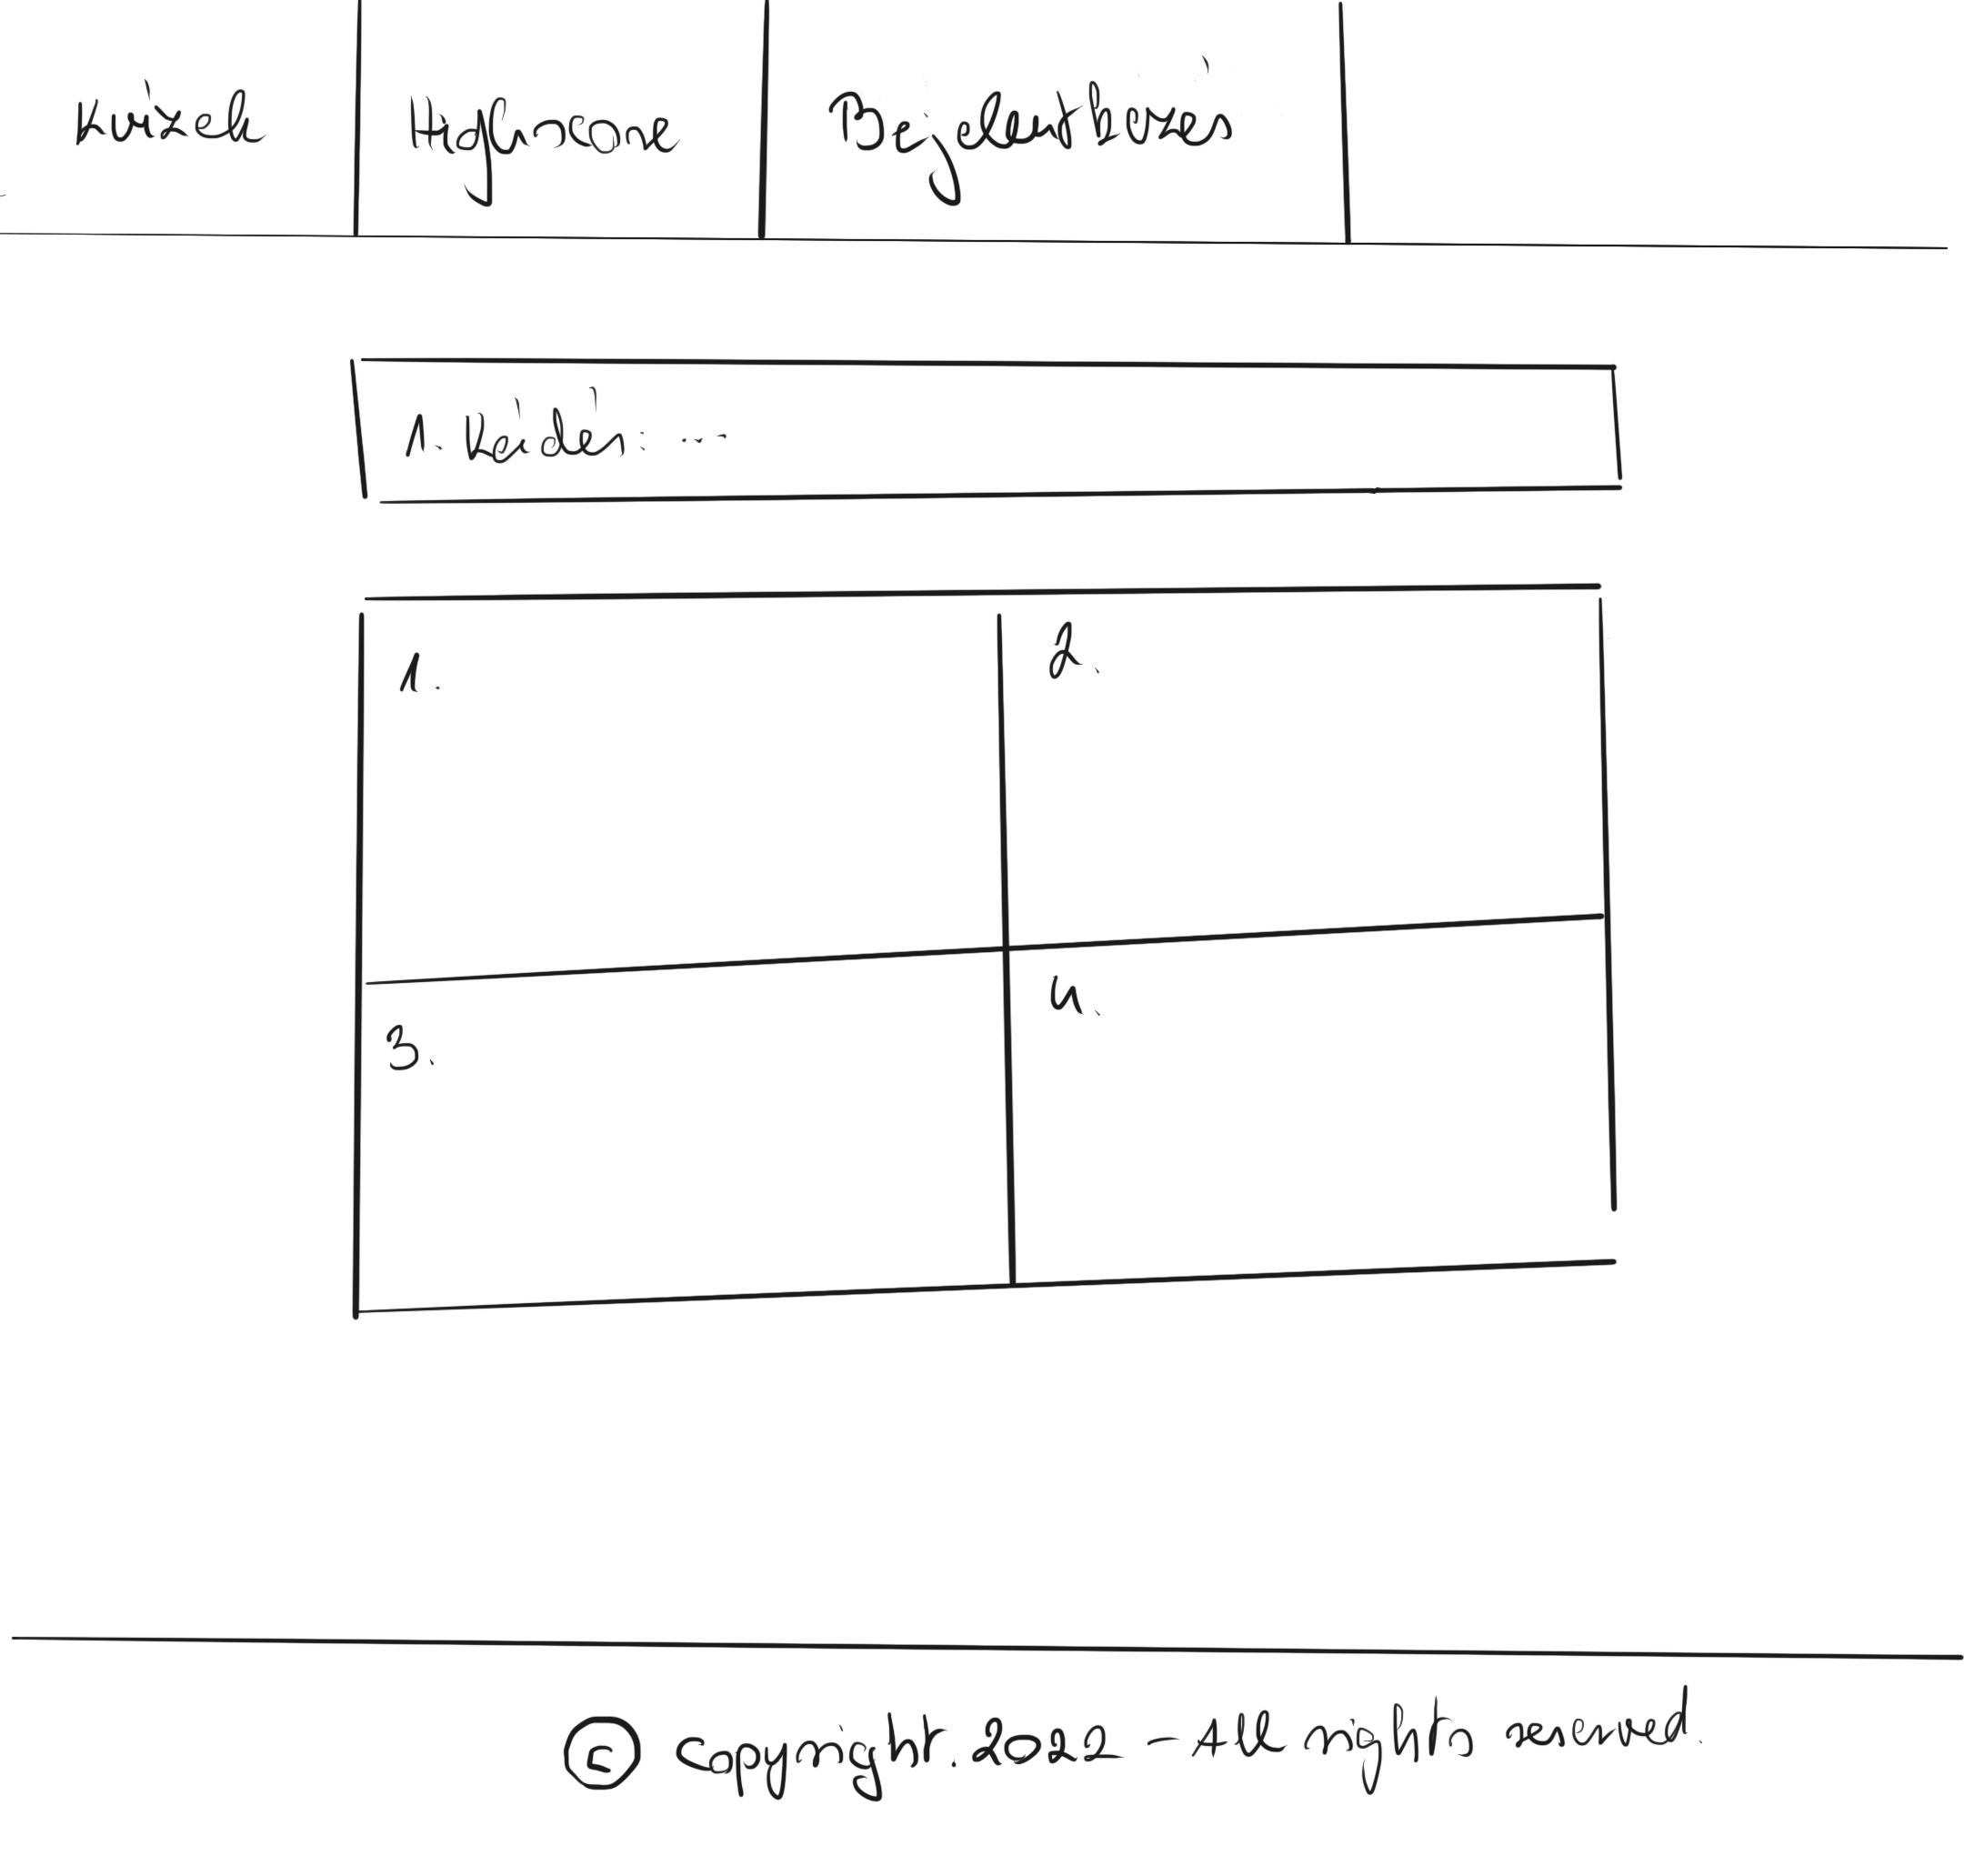 Kvízek Highscore Bejelentkezés
1. Kérdés: ...
1. 2.
3. 4.
© copyright. 2022 - All rights reserved.